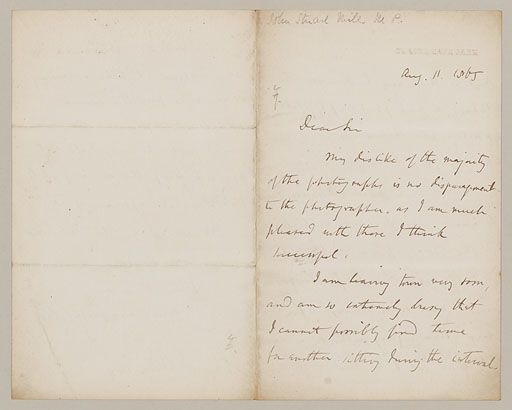 John Stuart Mill M.P.
BLACKHEATH PARK
Aug. 11. 1865
Dear Sir
My dislike of the majority
of the photographs is no disparagement
to the photographer, as I am much
pleased with those I think
successful.
I am leaving town very soon,
and am so extremely busy that
I cannot possibly find time
for another sitting during the interval.